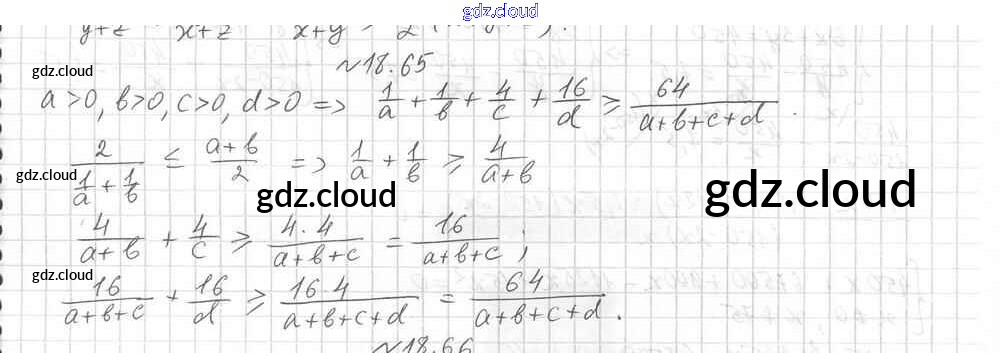 gdz.cloud
№18.65
gdz.cloud
a>0, b>0, c>0, d>0 => 1/a + 1/b + 4/c + 16/d ≥ 64/(a+b+c+d).
2/(1/a + 1/b) ≤ (a+b)/2 => 1/a + 1/b ≥ 4/(a+b)
gdz.cloud
gdz.cloud
gdz.cloud
4/(a+b) + 4/c ≥ 4·4/(a+b+c) = 16/(a+b+c);
gdz.cloud
16/(a+b+c) + 16/d ≥ 16·4/(a+b+c+d) = 64/(a+b+c+d).
№18.66